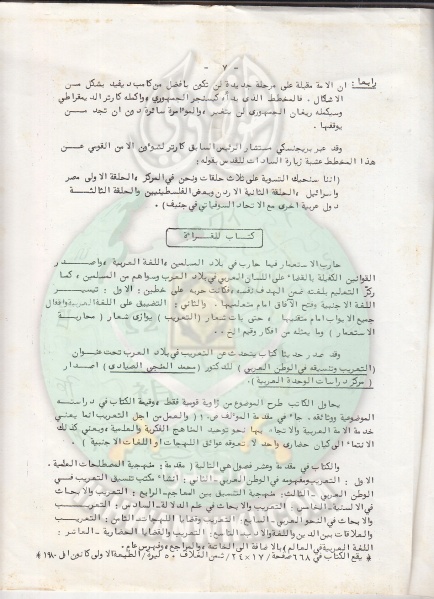 - ٧ -
رابعا : ان الامة مقبلة على مرحلة جديدة لن تكون بأفضل من كامب ديفيد بشكل من
الاشكال . فالمخطط الذي بدأه كيسنجر الجمهوري ، واكمله كارتر الديمقراطي
وسيكمله ريغان الجمهوري لن يتغير ، والمؤامرة سائرة دون ان تجد من
يوقفها .
وقد عبر بريجنسكي مستشار الرئيس السابق كارتر لشؤون الامن القومي عن
هذا المخطط عشية زيارة السادات للقدس بقوله :
( اننا سنحيك التسوية على ثلاث حلقات ونحن في المركز ، الحلقة الاولى مصر
واسرائيل ، الحلقة الثانية الاردن وبعض الفلسطينيين والحلقة الثالثة
دول عربية اخرى مع الاتحاد السوفياتي في جنيف ) .
كتاب للقراءة
حارب الاستعمار فيما حارب في بلاد المسلمين ، اللغة العربية ، واصدر
القوانين الكفيلة بالقضاء على اللسان العربي في بلاد العرب وسواهم من المسلمين ، كما
ركز التعليم بلغته ضمن الهدف نفسه ، فكانت حربه على خطين : الاول : تيسير
اللغة الاجنبية وفتح الآفاق امام متعلميها . والثاني : التضييق على اللغة العربية واقفال
جميع الابواب امام متقنيها ، حتى بات شعار ( التعريب ) يوازي شعار ( محاربة
الاستعمار ) وما يمثله من افكار وقيم الخ . .
وقد صدر حديثا كتاب يتحدث عن التعريب في بلاد العرب تحت عنوان
( التعريب وتنسيقه في الوطن العربي ) للدكتور ( محمد المنجي الصيادي ) اصدار
( مركز دراسات الوحدة العربية ) .
يحاول الكتاب طرح الموضوع من زاوية قومية فقط ، وقيمة الكتاب في دراسته
الموضوعية ووثائقه . جاء في مقدمة المؤلف ص ( ) والعمل من اجل التعريب انما يعني
خدمة الامة العربية والاتجاه بها نحو توحيد المناهج الفكرية والعلمية ، ويعني كذلك
الانتماء الى كيان حضاري واحد لا تعوقه عوائق اللهجات او اللغات الاجنبية ) .
والكتاب في مقدمة وعشر فصول هي التالية ( مقدمة : منهجية المصطلحات العلمية .
الاول : التعريب ومفهومه في الوطن العربي - الثاني : انشاء مكتب تنسيق التعريب في
الوطن العربي . الثالث : منهجية التنسيق بين المعاجم - الرابع : التعريب والابحاث
في الالسنية - التعريب والابحاث في علم الدلالة - السادس : التعريب
والابحاث في النحو العربي - السابع : التعريب وقضايا اللهجات - الثامن : التعريب
والعلاقات بين الدين واللغة والادب - التاسع : التعريب والقضايا الحضارية - العاشر :
اللغة العربية في العالم ) بالاضافة الى الخاتمة والمراجع وفهرس عام .
* يقع الكتاب في ٦٦٨ صفحة / ١٧ × ٢٤ / ثمن الغلاف ٥٠ ليرة / الطبعة الاولى كانون الاول ١٩٨٠ *